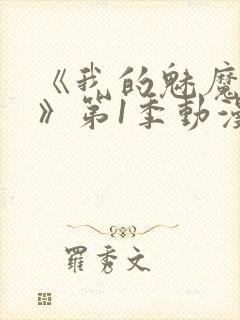 《我的魅魔
》第1季動漫
羅秀文